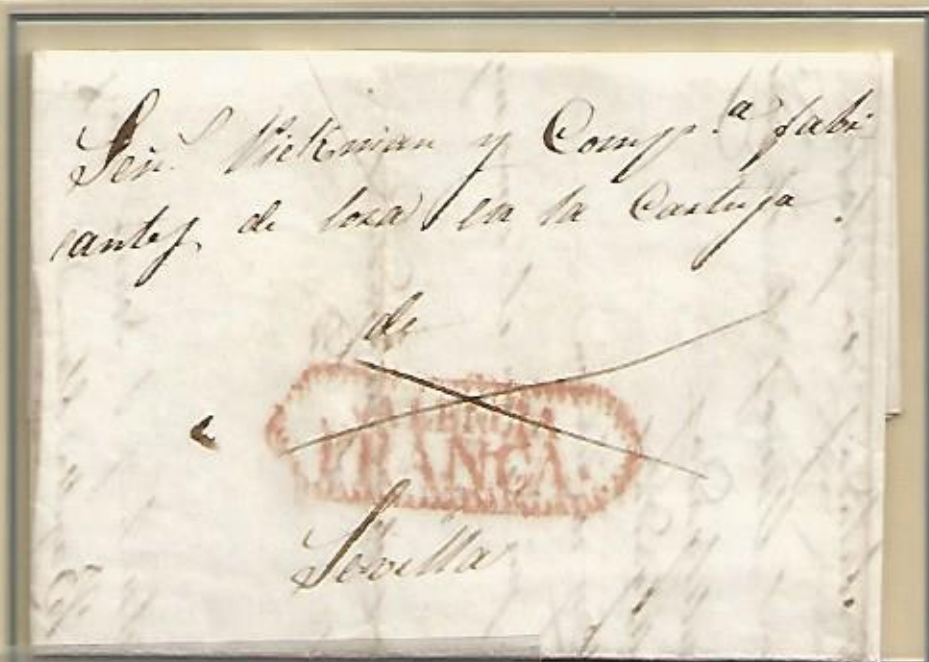 Señ.S Pickman y Comp.a fabri
cantes de losa en la Cartuja
de
FRANCA.
Sevilla